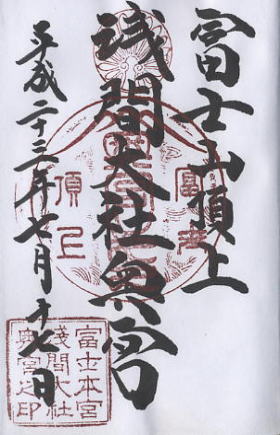 富士山頂上
浅間大社奥宮
平成二十三年七月十七日
富士
頂上
富士本宮
浅間大社
奥宮之印